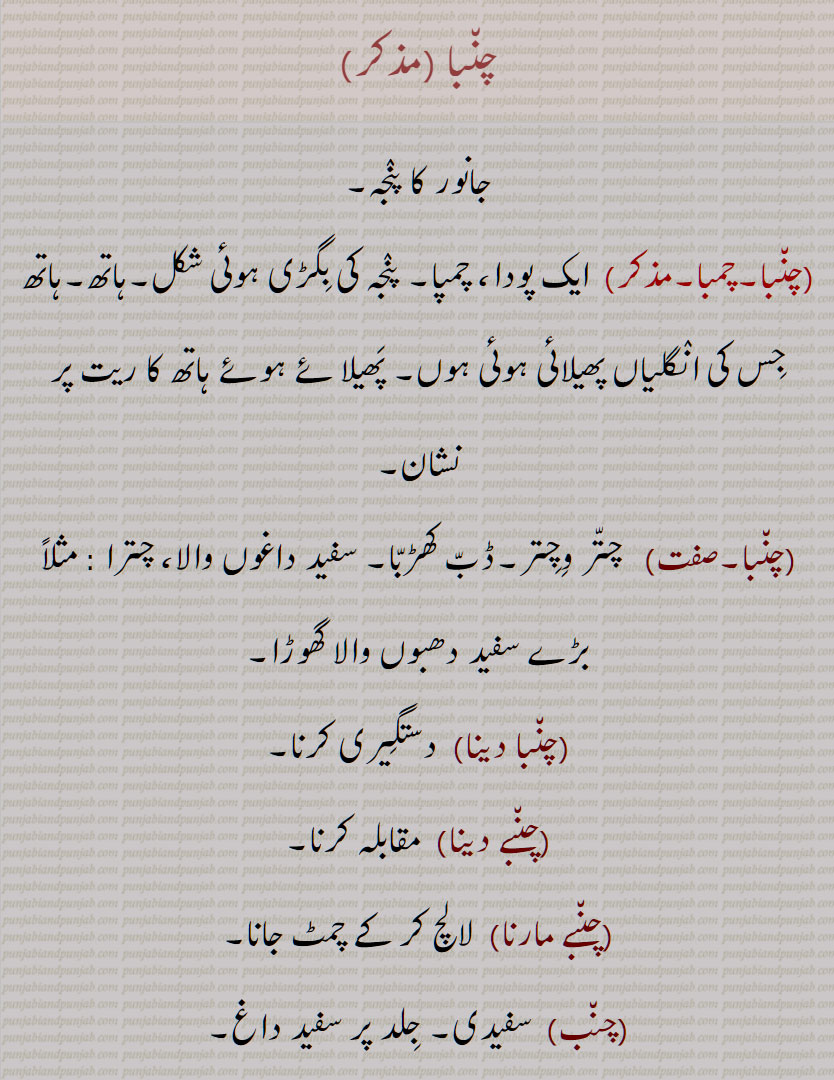 چنّبا (مذکر)
جانور کا پنْجہ۔
(چنّبا۔چمبا۔مذکر) ایک پودا، چمپا۔ پنْجہ کی بِگڑی ہوئی شکل۔ہاتھ۔ہاتھ
جِس کی انْگلیاں پھیلائی ہوئی ہوں۔ پَھیلائے ہوئے ہاتھ کا ریت پر
نشان۔
(چنّبا۔صفت) چتّر وِچتر۔ڈبّ کھڑبّا۔ سفید داغوں والا، چترا : مثلاً
بڑے سفید دھبوں والا گھوڑا۔
(چنّبا دینا) دستگیِری کرنا۔
(چنّبے دینا) مقابلہ کرنا۔
(چنّبے مارنا) لالچ کر کے چمٹ جانا۔
(چنّب) سفیدی۔ جِلد پر سفید داغ۔